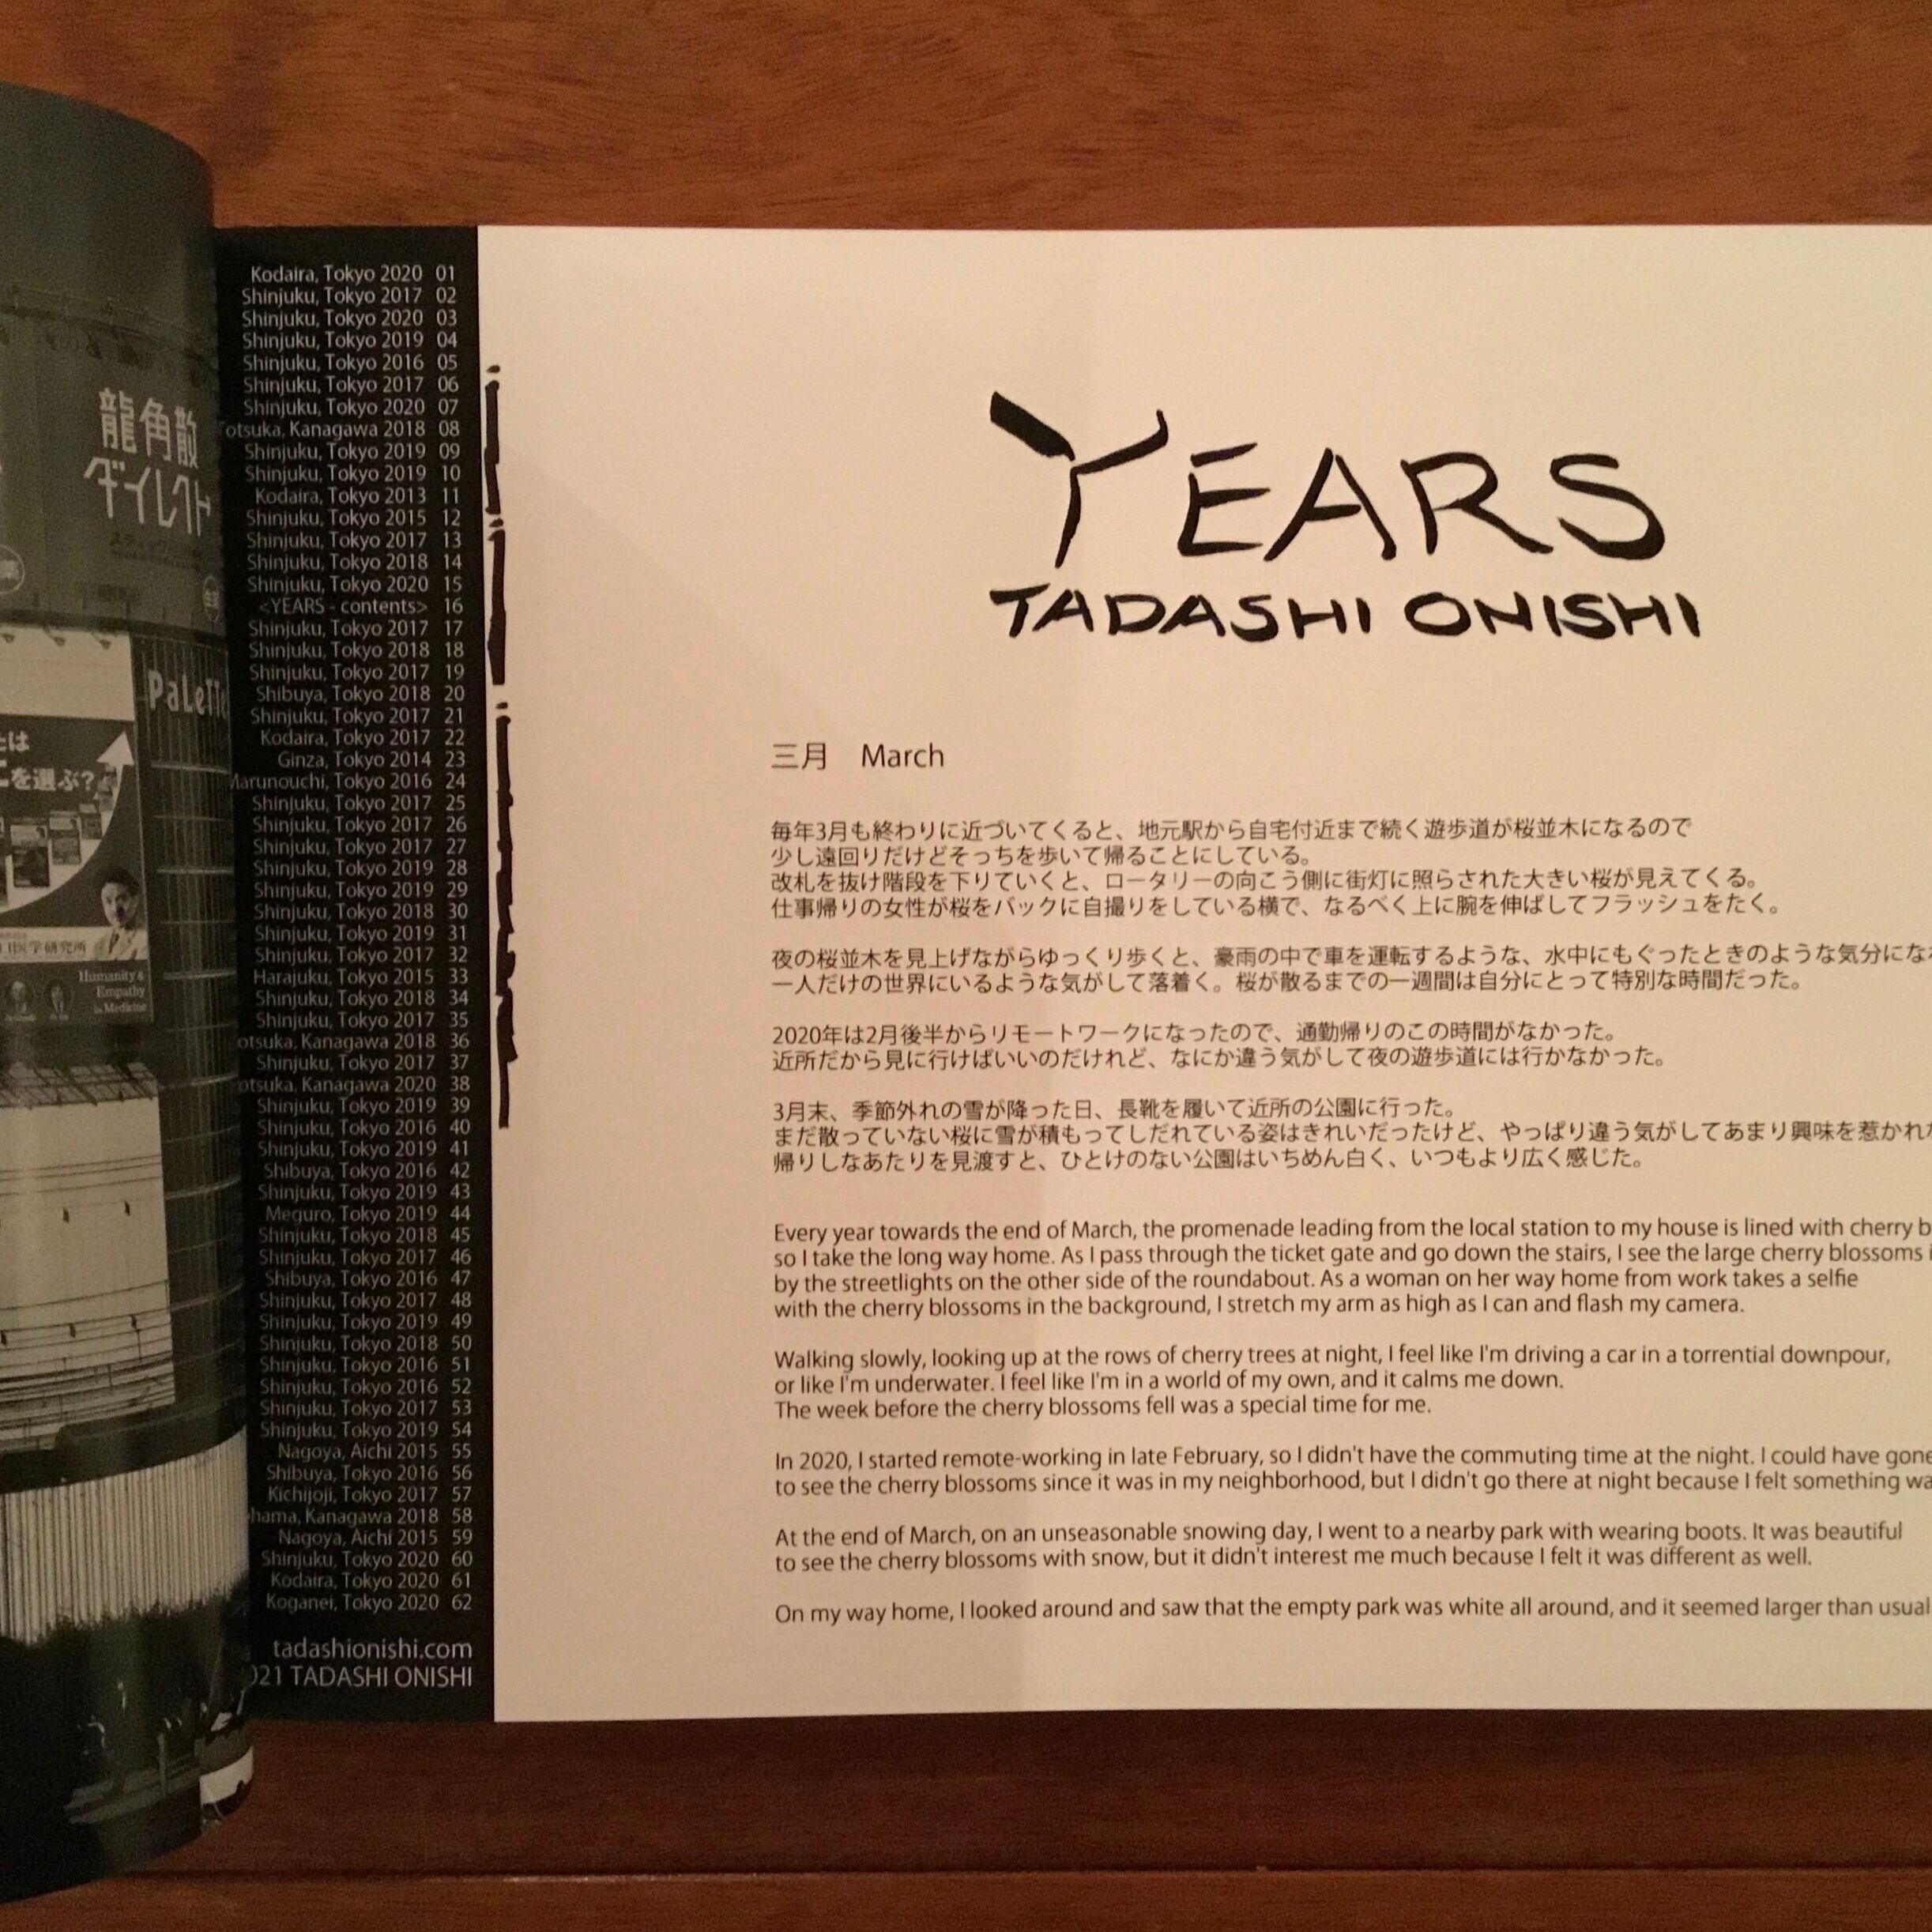 龍角散
ダイレクト
PaLeTTe
とは
こを選ぶ?
医学研究所
Humanity &
Empathy
in Medicine
Kodaira, Tokyo 2020 01
Shinjuku, Tokyo 2017 02
Shinjuku, Tokyo 2020 03
Shinjuku, Tokyo 2019 04
Shinjuku, Tokyo 2016 05
Shinjuku, Tokyo 2017 06
Shinjuku, Tokyo 2020 07
otsuka, Kanagawa 2018 08
Shinjuku, Tokyo 2019 09
Shinjuku, Tokyo 2019 10
Kodaira, Tokyo 2013 11
Shinjuku, Tokyo 2015 12
Shinjuku, Tokyo 2017 13
Shinjuku, Tokyo 2018 14
Shinjuku, Tokyo 2020 15
<YEARS - contents> 16
Shinjuku, Tokyo 2017 17
Shinjuku, Tokyo 2018 18
Shinjuku, Tokyo 2017 19
Shibuya, Tokyo 2018 20
Shinjuku, Tokyo 2017 21
Kodaira, Tokyo 2017 22
Ginza, Tokyo 2014 23
Marunouchi, Tokyo 2016 24
Shinjuku, Tokyo 2017 25
Shinjuku, Tokyo 2017 26
Shinjuku, Tokyo 2017 27
Shinjuku, Tokyo 2019 28
Shinjuku, Tokyo 2019 29
Shinjuku, Tokyo 2018 30
Shinjuku, Tokyo 2019 31
Shinjuku, Tokyo 2017 32
Harajuku, Tokyo 2015 33
Shinjuku, Tokyo 2018 34
Shinjuku, Tokyo 2017 35
otsuka, Kanagawa 2018 36
Shinjuku, Tokyo 2017 37
otsuka, Kanagawa 2020 38
Shinjuku, Tokyo 2019 39
Shinjuku, Tokyo 2016 40
Shinjuku, Tokyo 2019 41
Shibuya, Tokyo 2016 42
Shinjuku, Tokyo 2019 43
Meguro, Tokyo 2019 44
Shinjuku, Tokyo 2018 45
Shinjuku, Tokyo 2017 46
Shibuya, Tokyo 2016 47
Shinjuku, Tokyo 2017 48
Shinjuku, Tokyo 2019 49
Shinjuku, Tokyo 2018 50
Shinjuku, Tokyo 2016 51
Shinjuku, Tokyo 2016 52
Shinjuku, Tokyo 2017 53
Shinjuku, Tokyo 2019 54
Nagoya, Aichi 2015 55
Shibuya, Tokyo 2016 56
Kichijoji, Tokyo 2017 57
hama, Kanagawa 2018 58
Nagoya, Aichi 2015 59
Shinjuku, Tokyo 2020 60
Kodaira, Tokyo 2020 61
Koganei, Tokyo 2020 62
tadashionishi.com
021 TADASHI ONISHI
YEARS
TADASHI ONISHI
三月 March
毎年3月も終わりに近づいてくると、地元駅から自宅付近まで続く遊歩道が桜並木になるので
少し遠回りだけどそっちを歩いて帰ることにしている。
改札を抜け階段を下りていくと、ロータリーの向こう側に街灯に照らされた大きい桜が見えてくる。
仕事帰りの女性が桜をバックに自撮りをしている横で、なるべく上に腕を伸ばしてフラッシュをたく。
夜の桜並木を見上げながらゆっくり歩くと、豪雨の中で車を運転するような、水中にもぐったときのような気分にな
一人だけの世界にいるような気がして落着く。桜が散るまでの一週間は自分にとって特別な時間だった。
2020年は2月後半からリモートワークになったので、通勤帰りのこの時間がなかった。
近所だから見に行けばいいのだけれど、なにか違う気がして夜の遊歩道には行かなかった。
3月末、季節外れの雪が降った日、長靴を履いて近所の公園に行った。
まだ散っていない桜に雪が積もってしだれている姿はきれいだったけど、やっぱり違う気がしてあまり興味を惹かれ
帰りしなあたりを見渡すと、ひとけのない公園はいちめん白く、いつもより広く感じた。
Every year towards the end of March, the promenade leading from the local station to my house is lined with cherry b
so I take the long way home. As I pass through the ticket gate and go down the stairs, I see the large cherry blossoms i
by the streetlights on the other side of the roundabout. As a woman on her way home from work takes a selfie
with the cherry blossoms in the background, I stretch my arm as high as I can and flash my camera.
Walking slowly, looking up at the rows of cherry trees at night, I feel like I'm driving a car in a torrential downpour,
or like I'm underwater. I feel like I'm in a world of my own, and it calms me down.
The week before the cherry blossoms fell was a special time for me.
In 2020, I started remote-working in late February, so I didn't have the commuting time at the night. I could have gone
to see the cherry blossoms since it was in my neighborhood, but I didn't go there at night because I felt something wa
At the end of March, on an unseasonable snowing day, I went to a nearby park with wearing boots. It was beautiful
to see the cherry blossoms with snow, but it didn't interest me much because I felt it was different as well.
On my way home, I looked around and saw that the empty park was white all around, and it seemed larger than usual